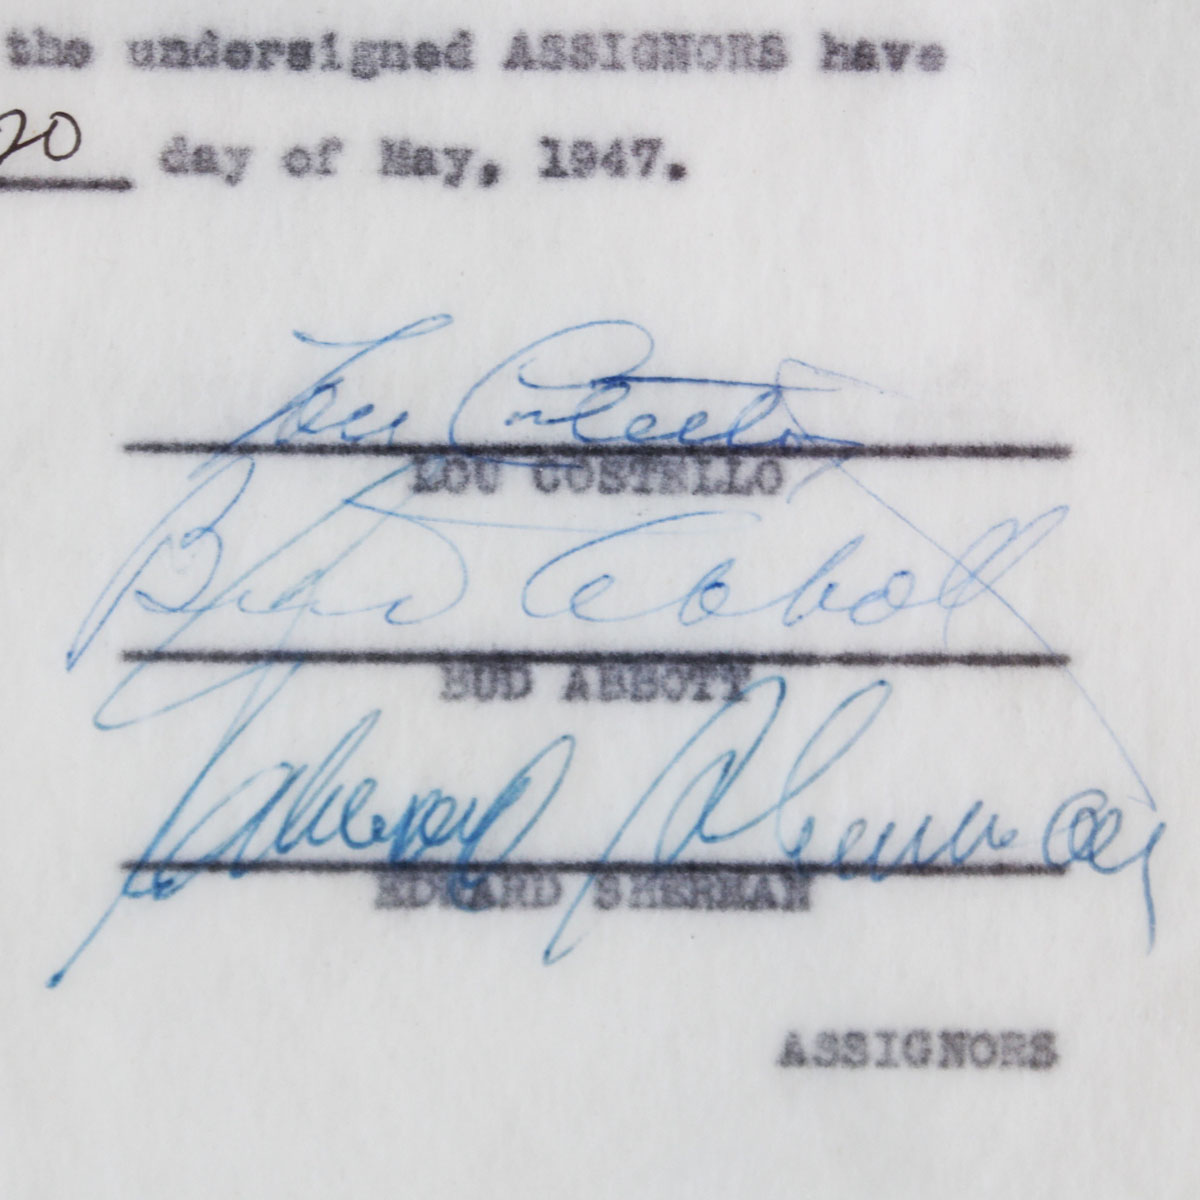 the undersigned ASSIGNORS have
20 day of May, 1947.
Lou Costello
LOU COSTELLO
Bud Abbott
BUD ABBOTT
Edward Sherman
EDWARD SHERMAN
ASSIGNORS